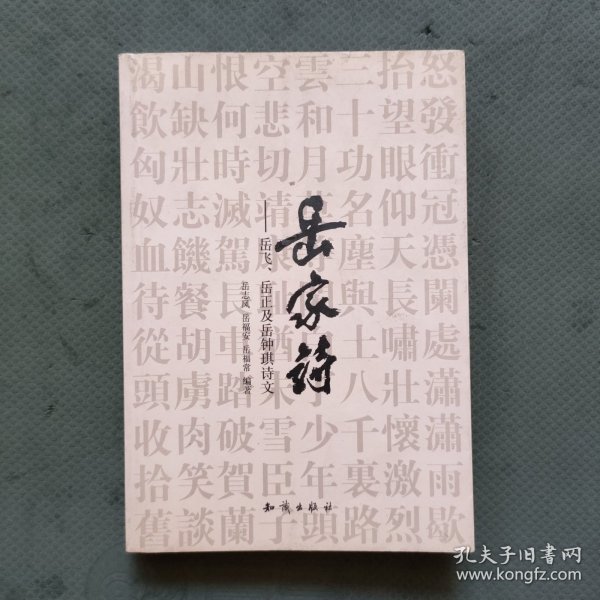 怒發衝冠憑闌處瀟瀟雨歇
抬望眼仰天長嘯壯懷激烈
三十功名塵與土八千裏路
雲和月莫少年頭
空悲切靖康猶未雪臣子
恨何時滅駕長車踏破賀蘭
山缺壯志饑餐胡虜肉笑談
渴飲匈奴血待從頭收拾舊
岳家诗
——岳飞、岳正及岳钟琪诗文
岳志凤 岳福安 岳福常 编著
知识出版社
孔夫子旧书网
www.kongfz.com